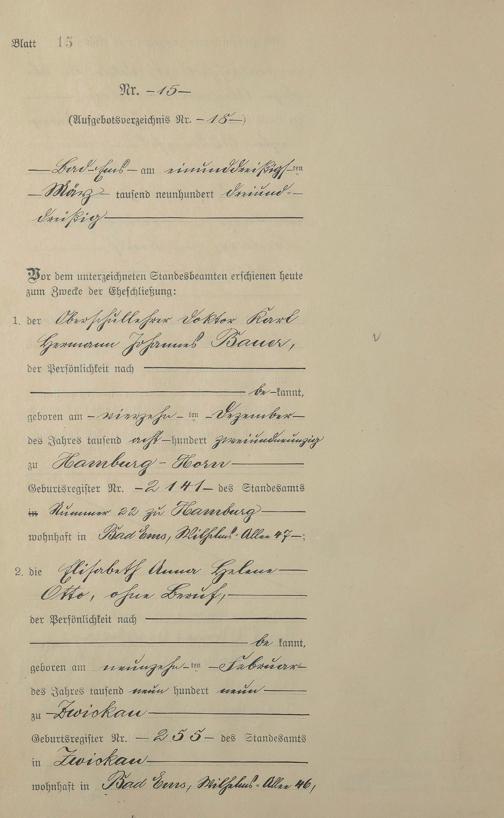 Blatt 15
Nr. —15—
(Aufgebotsverzeichnis Nr. —18—)
— Bad Ems — am einunddreißigsten
— März — tausend neunhundert dreiund-
dreißig —
Vor dem unterzeichneten Standesbeamten erschienen heute
zum Zwecke der Eheschließung:
1. der Oberschullehrer Doktor Karl
Hermann Johannes Bauer,
der Persönlichkeit nach —
— be—kannt,
geboren am — vierzehn — ten — Dezember —
des Jahres tausend acht—hundert zweiundneunzig
zu Hamburg - Horn —
Geburtsregister Nr. — 2141 — des Standesamts
in Nummer 22 zu Hamburg —
wohnhaft in Bad Ems, Wilhelms-Allee 47—;
2. die Elisabeth Anna Helene —
Otto, ohne Beruf, —
der Persönlichkeit nach —
— be kannt,
geboren am neunzehn — ten — Februar —
des Jahres tausend neun hundert neun —
zu — Zwickau —
Geburtsregister Nr. — 255 — des Standesamts
in Zwickau —
wohnhaft in Bad Ems, Wilhelms-Allee 46,